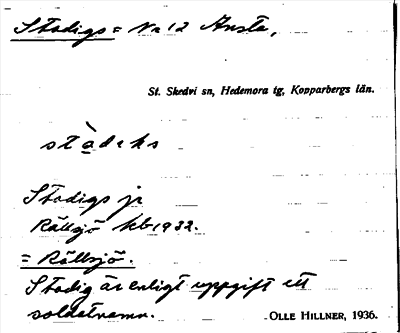 Stadigs = Nr 12 Ansta,
St. Skedvi sn, Hedemora tg, Kopparbergs län.
Stadigs jr
Rällsjö kb 1932.
= Rällsjö.
Stadig är enligt uppgift ett
soldatnamn.
OLLE HILLNER, 1936.